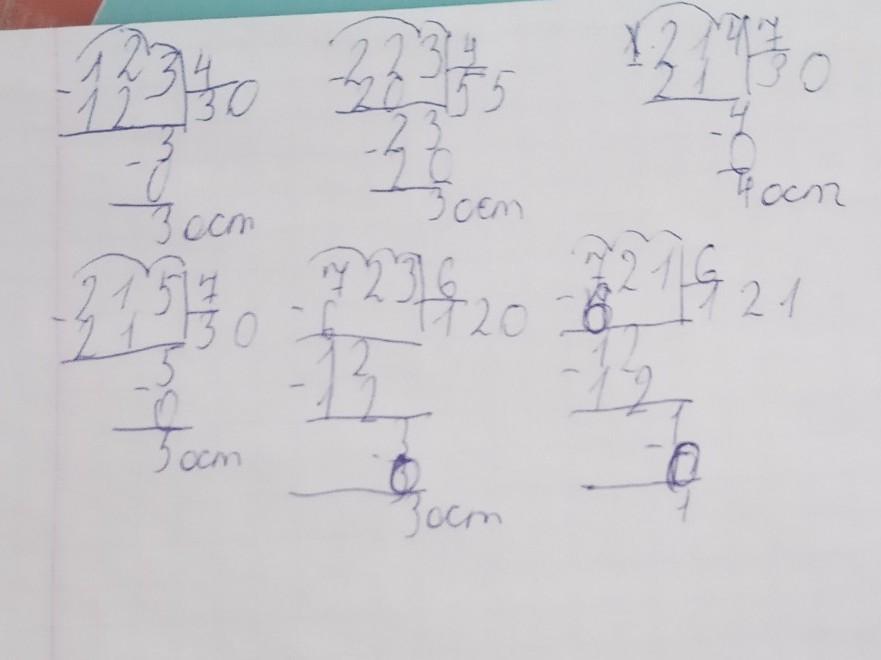 -123|4 -223|4 214|7
12 |30 20 |55 21 |30
-3 -23 -4
0 20 0
3 ост 3 ост 4 ост
-215|7 -723|6 -721|6
21 |30 6 |120 6 |121
-5 -12 -12
0 12 12
5 ост -3 -1
0 0
3 ост 1